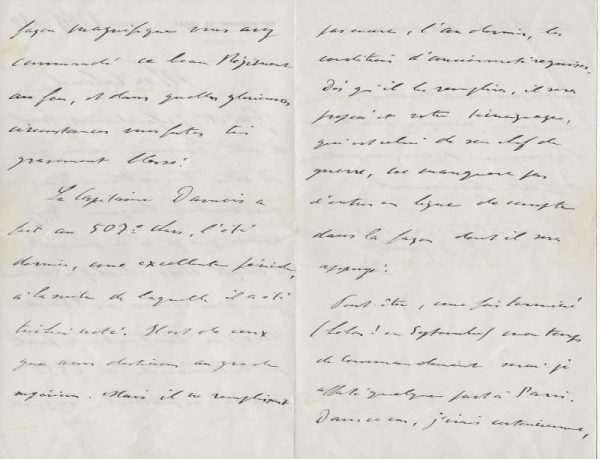 façon magnifique vous avez
commandé ce beau Régiment
au feu, et dans quelles glorieuses
circonstances vous fûtes très
gravement blessé!
Le Capitaine Damois a
fait au 507e Chars, l'été
dernier, une excellente période,
à la suite de laquelle il a été
très bien noté. Il est de ceux
que nous destinons au grade
supérieur. Mais il ne remplissait
pas encore, l'an dernier, les
conditions d'ancienneté requises.
Dès qu'il les remplira, il sera
proposé et votre témoignage,
qui est celui de son chef de
guerre, ne manquera pas
d'entrer en ligne de compte
dans la façon dont il sera
appuyé.
Peut-être, une fois terminé
(hélas! en Septembre) mon temps
de commandement serai-je
affecté quelque part à Paris.
Dans ce cas, j'irais certainement,